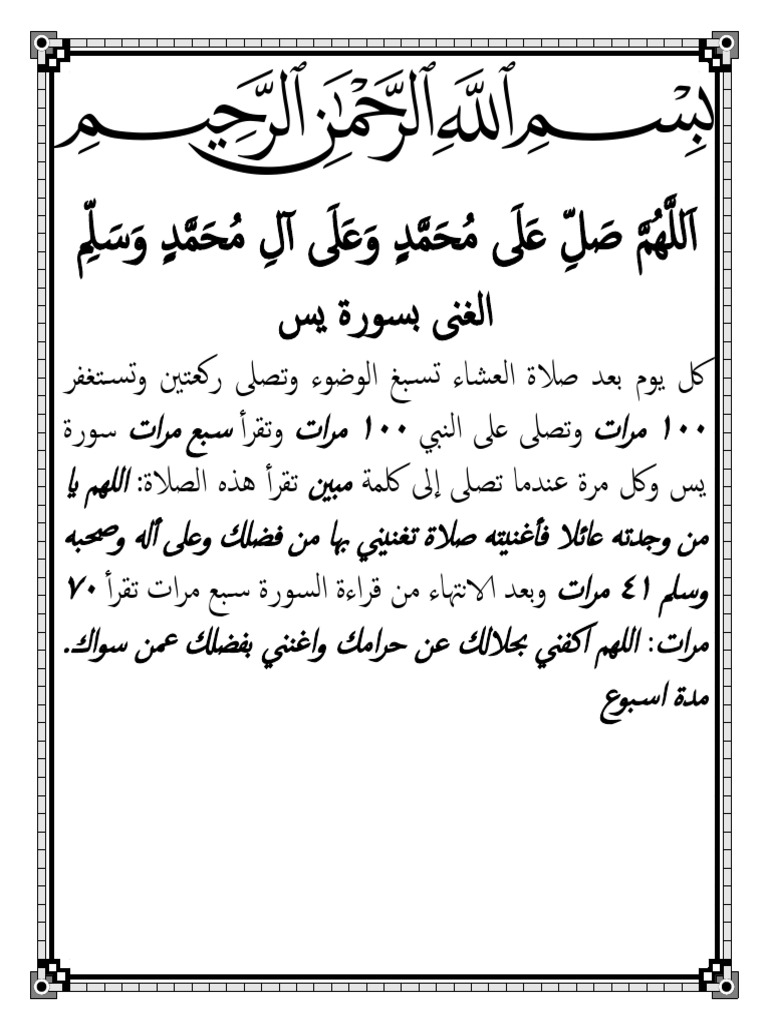 بِسْمِ ٱللَّهِ ٱلرَّحْمَٰنِ ٱلرَّحِيمِ
اَللَّهُمَّ صَلِّ عَلَى مُحَمَّدٍ وَعَلَى آلِ مُحَمَّدٍ وَسَلِّمِ
الغنى بسورة يس
كل يوم بعد صلاة العشاء تسبغ الوضوء وتصلى ركعتين وتستغفر
١٠٠ مرات وتصلى على النبي ١٠٠ مرات وتقرأ سبع مرات سورة
يس وكل مرة عندما تصلى إلى كلمة مبين تقرأ هذه الصلاة: اللهم يا
من وجدته عائلا فأغنيته صلاة تغنيني بها من فضلك وعلى أله وصحبه
وسلم ٤١ مرات وبعد الانتهاء من قراءة السورة سبع مرات تقرأ ٧٠
مرات: اللهم اكفني بحلالك عن حرامك واغنني بفضلك عمن سواك.
مدة اسبوع